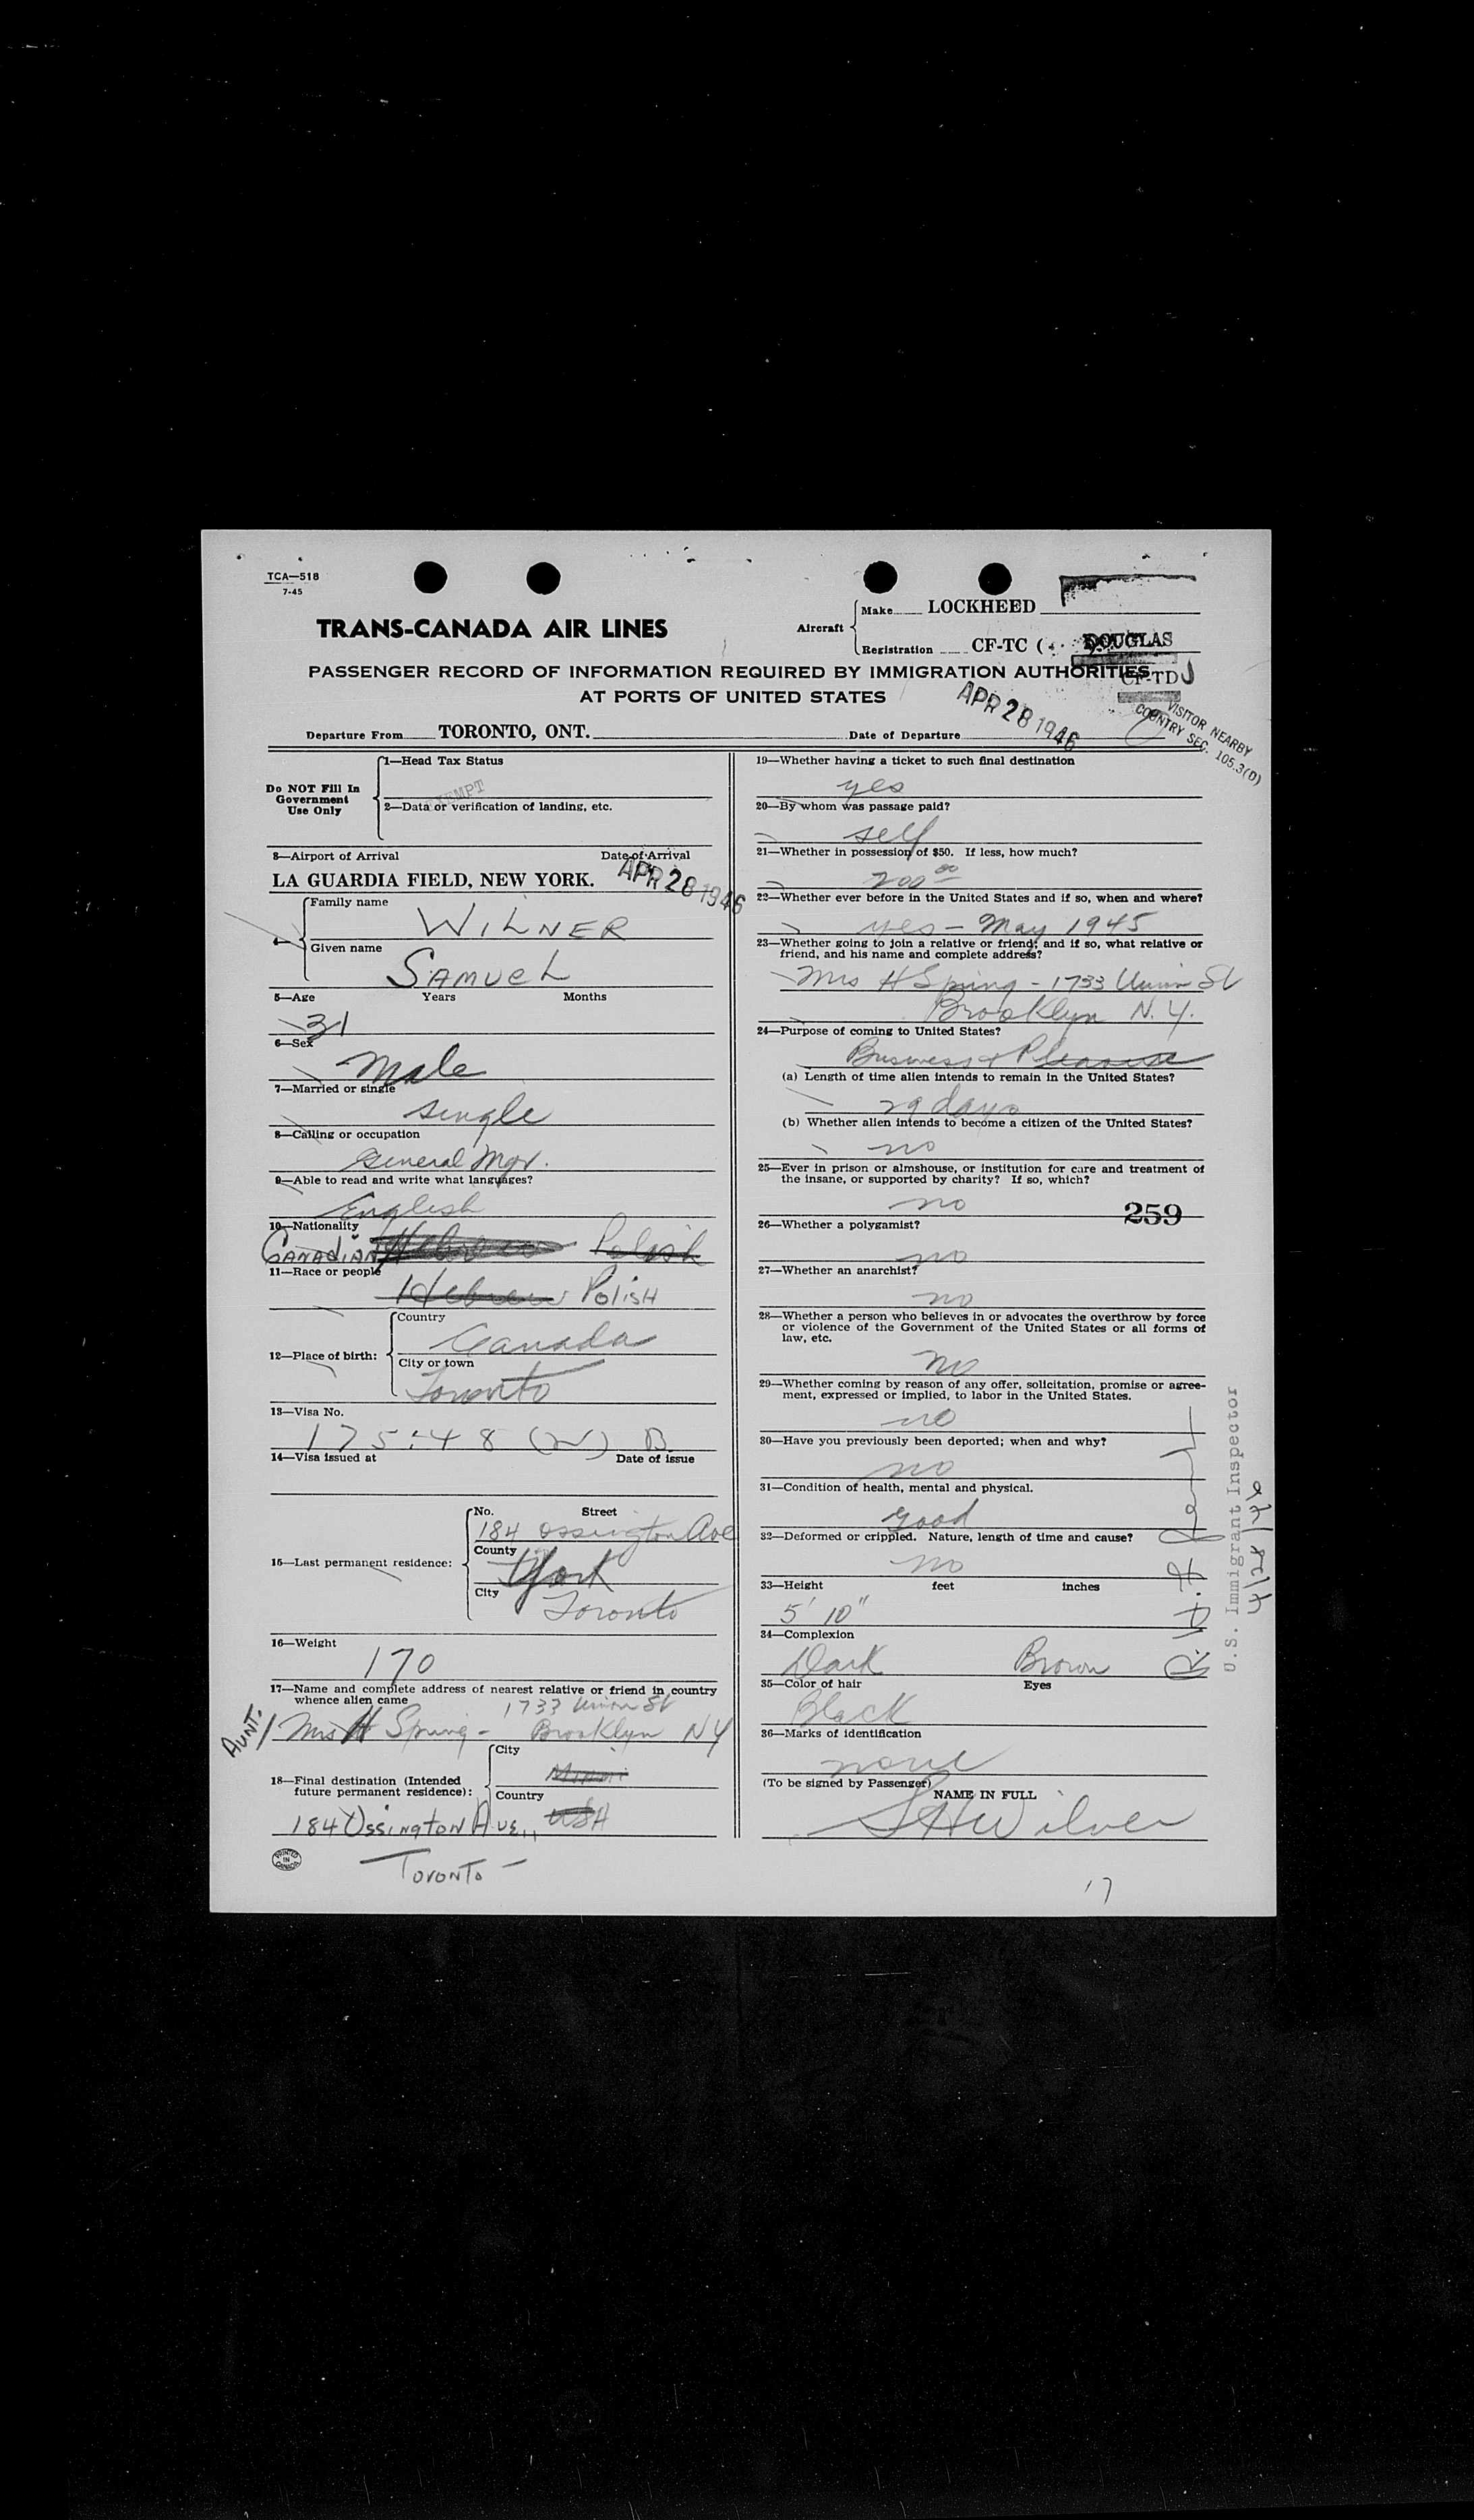 TCA—518
7-45
TRANS-CANADA AIR LINES
Aircraft
Make LOCKHEED
Registration CF-TC ( DOUGLAS
CF-TD J
PASSENGER RECORD OF INFORMATION REQUIRED BY IMMIGRATION AUTHORITIES
AT PORTS OF UNITED STATES
APR 28 1946
VISITOR NEARBY
COUNTRY SEC. 105.3(D)
Departure From TORONTO, ONT. Date of Departure
Do NOT Fill In
Government
Use Only
1—Head Tax Status
EXEMPT
2—Data or verification of landing, etc.
3—Airport of Arrival Date of Arrival
LA GUARDIA FIELD, NEW YORK. APR 28 1946
Family name
WILNER
Given name
SAMUEL
5—Age Years Months
31
6—Sex
Male
7—Married or single
single
8—Calling or occupation
General Mgr.
9—Able to read and write what languages?
English
10—Nationality
CANADIAN Hebrew Polish
11—Race or people
Hebrew POLISH
12—Place of birth:
Country
Canada
City or town
Toronto
13—Visa No.
175:48 (W) B.
14—Visa issued at Date of issue
15—Last permanent residence:
No. Street
184 Ossington Ave
County
York
City
Toronto
16—Weight
170
17—Name and complete address of nearest relative or friend in country
whence alien came
1733 Union St
AUNT. / Mrs H Spring - Brooklyn NY
18—Final destination (Intended
future permanent residence):
City
Miami
Country
USA
184 Ossington Ave.,
Toronto -
PRINTED
IN
CANADA
19—Whether having a ticket to such final destination
yes
20—By whom was passage paid?
self
21—Whether in possession of $50. If less, how much?
200 00
22—Whether ever before in the United States and if so, when and where?
yes - May 1945
23—Whether going to join a relative or friend; and if so, what relative or
friend, and his name and complete address?
Mrs H Spring - 1733 Union St
Brooklyn N.Y.
24—Purpose of coming to United States?
Business & Pleasure
(a) Length of time alien intends to remain in the United States?
29 days
(b) Whether alien intends to become a citizen of the United States?
no
25—Ever in prison or almshouse, or institution for care and treatment of
the insane, or supported by charity? If so, which?
no
259
26—Whether a polygamist?
no
27—Whether an anarchist?
no
28—Whether a person who believes in or advocates the overthrow by force
or violence of the Government of the United States or all forms of
law, etc.
no
29—Whether coming by reason of any offer, solicitation, promise or agree-
ment, expressed or implied, to labor in the United States.
no
30—Have you previously been deported; when and why?
no
31—Condition of health, mental and physical.
good
32—Deformed or crippled. Nature, length of time and cause?
no
33—Height feet inches
5' 10"
34—Complexion
Dark Brown
35—Color of hair Eyes
Black
36—Marks of identification
none
(To be signed by Passenger)
NAME IN FULL
S H Wilner
U.S. Immigrant Inspector
4/28/46
17